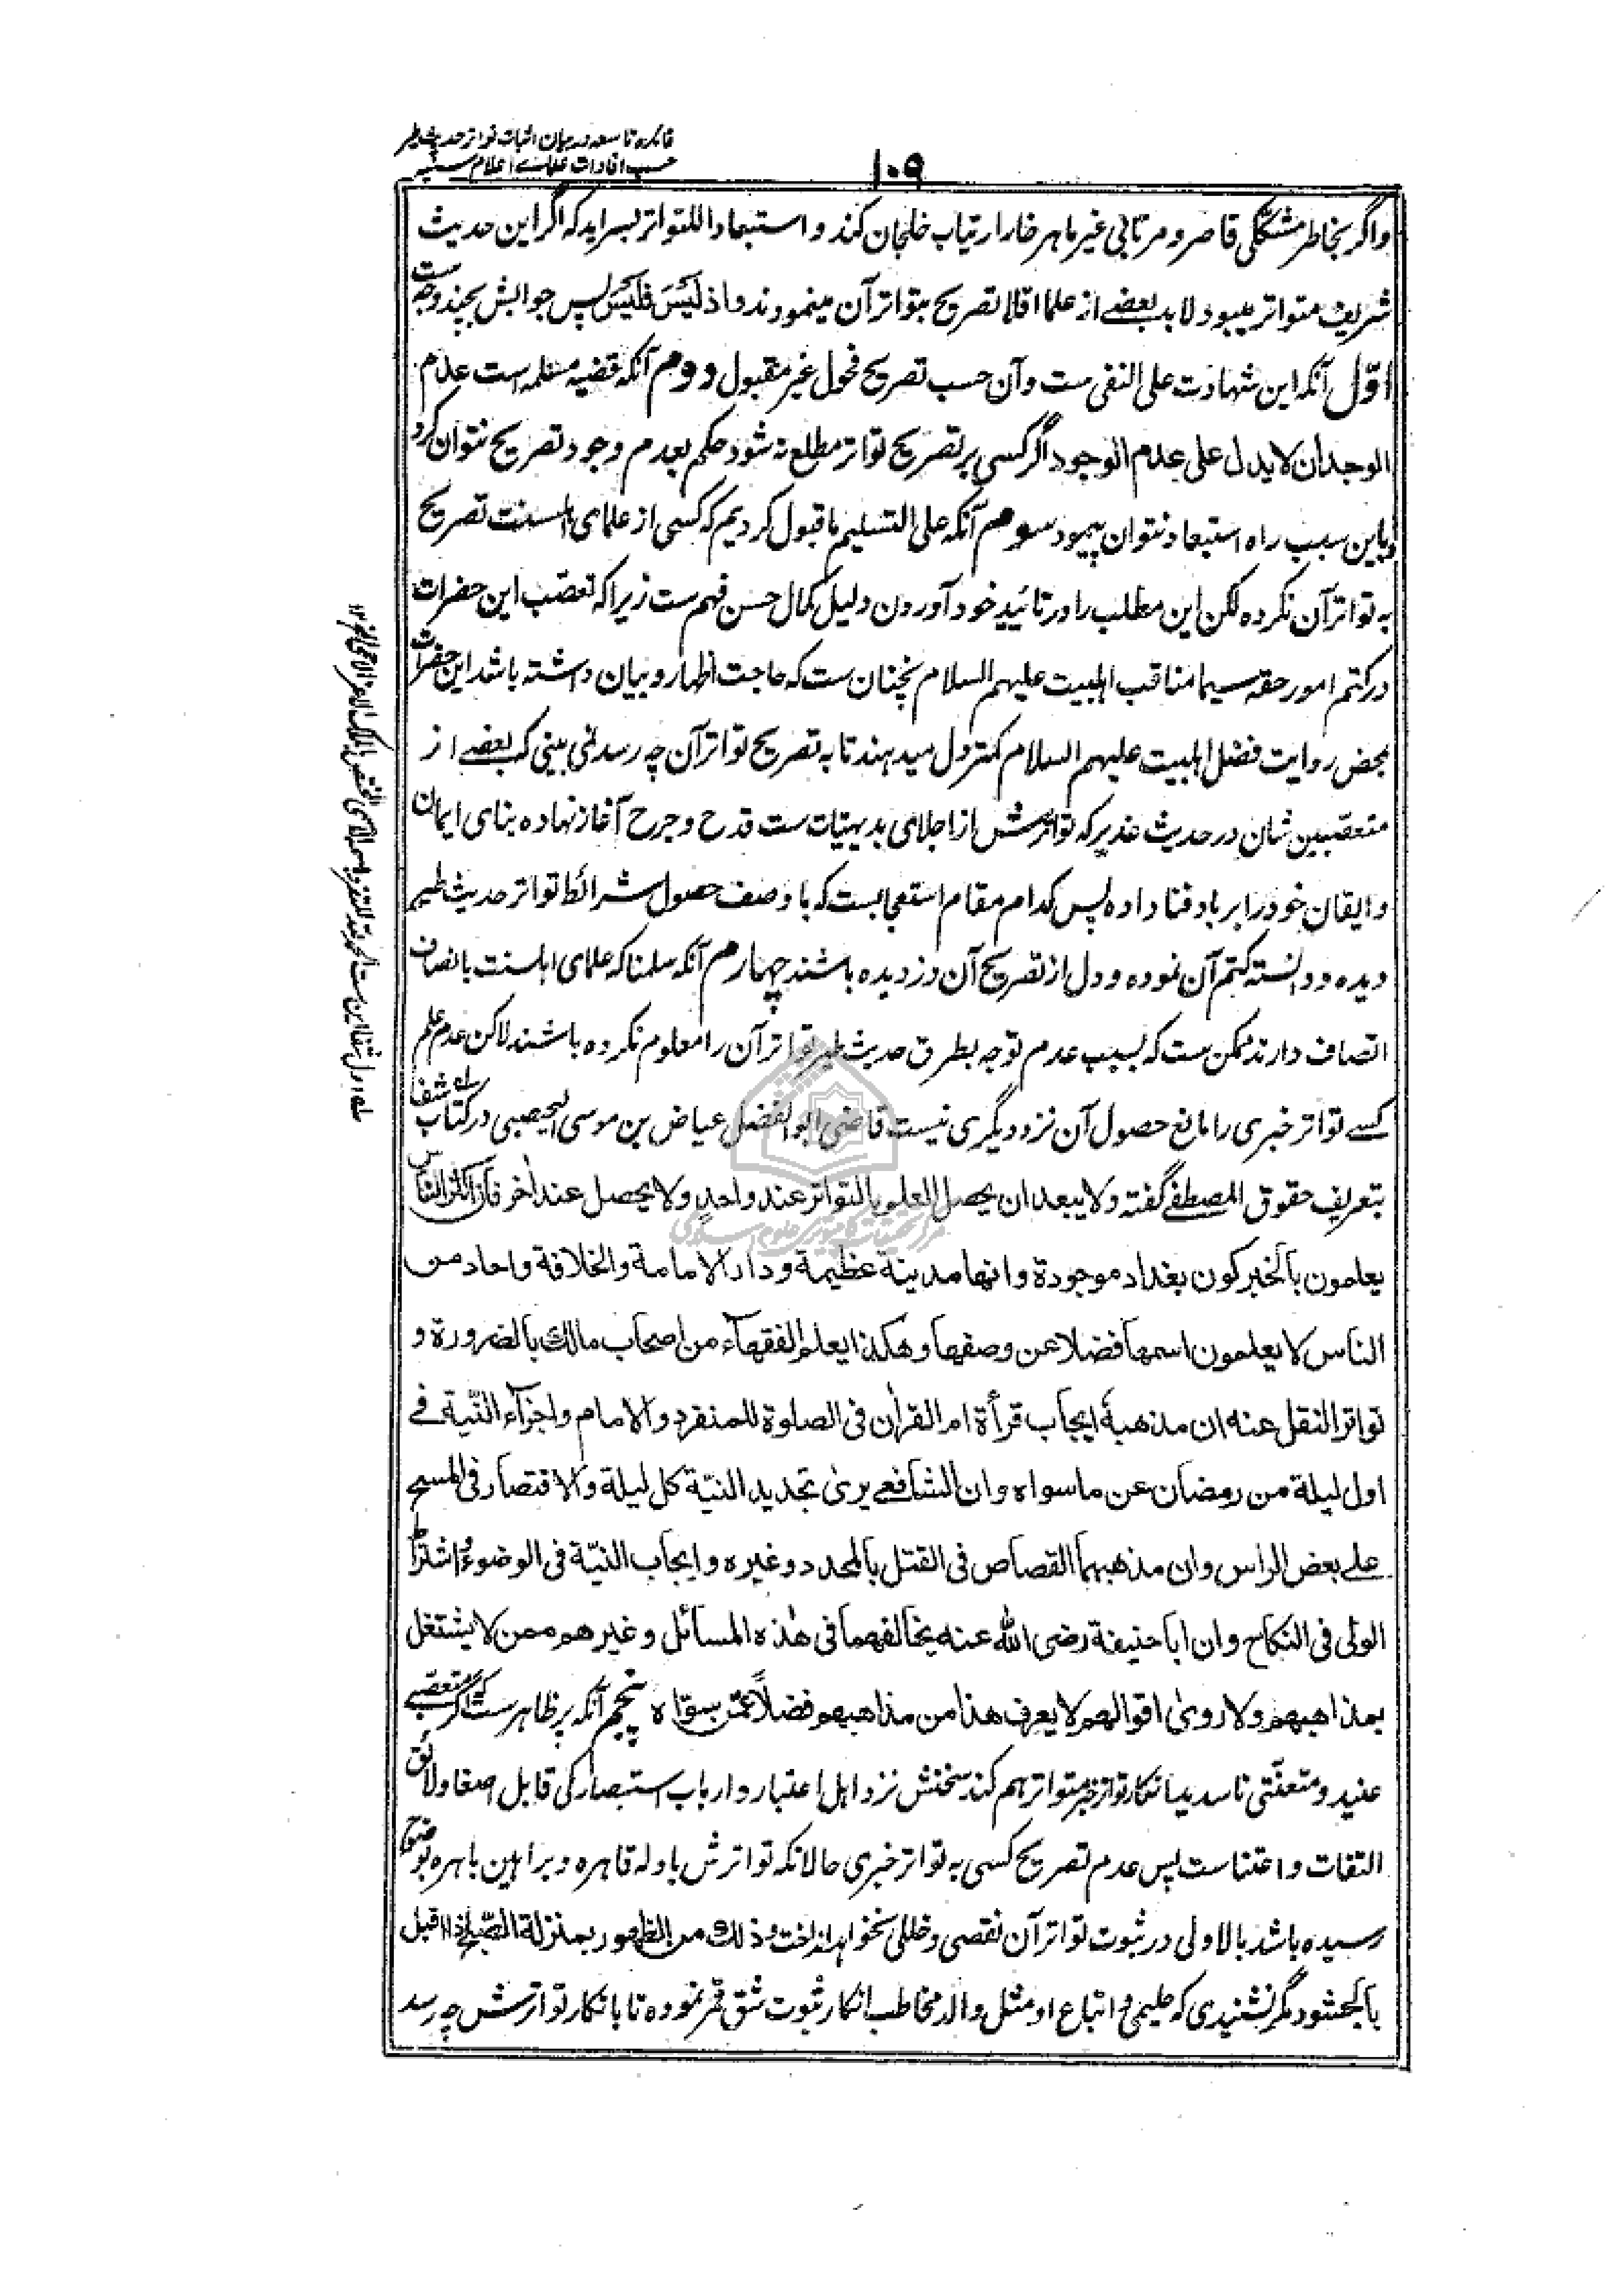 فائده تاسعه در بیان اثبات تواتر حدیث طیر
حسب افادات علمای اعلام سنیه
۱۰۹
واگر بخاطر مشککی قاصر و مرتابی غیر ماهر خار ارتیاب خلجان کند و استبعادا للتواتر بسراید که اگر این حدیث
شریف متواتر میبود لابد بعضے از علما اقلا تصریح بتواتر آن مینمودند و اذ لیس فلیس پس جوابش بچند وجه ست
اول آنکه این شهادت علی النفی ست و آن حسب تصریح فحول غیر مقبول دوم آنکه قضیه مسلمه است عدم
الوجدان لا یدل علی عدم الوجود اگر کسی بر تصریح تواتر مطلع نه شود حکم بعدم وجود تصریح نتوان کرد
و باین سبب راه استبعاد نتوان پیمود سوم آنکه علی التسلیم ما قبول کردیم که کسی از علمای اهلسنت تصریح
به تواتر آن نکرده لکن این مطلب را در تائید خود آوردن دلیل کمال حسن فهم ست زیرا که تعصب این حضرات
در کتم امور حقه سیما مناقب اهلبیت علیهم السلام نچنان ست که حاجت اظهار و بیان داشته باشد این حضرات
بمحض روایت فضل اهلبیت علیهم السلام کمتر دل میدهند تا به تصریح تواتر آن چه رسد نمی بینی که بعضے از
متعصبین شان در حدیث غدیر که تواترش از اجلای بدیهیات ست قدح و جرح آغاز نهاده بنای ایمان
و ایقان خود را بر باد فنا داده پس کدام مقام استعجابست که با وصف حصول شرائط تواتر حدیث طیر
دیده و دانسته کتم آن نموده و دل از تصریح آن دزدیده باشند چهارم آنکه سلمنا که علمای اهلسنت بانصاف
اتصاف دارند ممکن ست که بسبب عدم توجه بطرق حدیث طیر تواتر آن را معلوم نکرده باشند لاکن عدم علم
کسے تواتر خبری را مانع حصول آن نزد دیگری نیست قاضی ابو الفضل عیاض بن موسی الیحصبی در کتاب شفا
بتعریف حقوق المصطفے گفته ولا یبعد ان یحصل العلم بالتواتر عند واحد ولا یحصل عند اخر فان اکثر الناس
یعلمون بالخبر کون بغداد موجودة وانها مدینة عظیمة ودار الامامة والخلافة واحاد من
الناس لا یعلمون اسمها فضلا عن وصفها وهکذا یعلم الفقهاء من اصحاب مالك بالضرورة و
تواتر النقل عنه ان مذهبه ایجاب قرأة ام القران فی الصلوة للمنفرد والامام واجزاء النیة فے
اول لیلة من رمضان عن ما سواه وان الشافعے یری تجدید النیة کل لیلة والاقتصار فی المسح
علے بعض الراس وان مذهبهما القصاص فی القتل بالمحدد وغیره وایجاب النیة فی الوضوء واشتراط
الولی فی النکاح وان ابا حنیفة رضی الله عنه یخالفهما فی هذه المسائل وغیرهم ممن لا یشتغل
بمذاهبهم ولا روی اقوالهم لا یعرف هذا من مذاهبهم فضلا عمن سواه پنجم آنکه پر ظاهر ست که اگر متعصبے
عنید و متعنتی ناسدید انکار تواتر خبر متواتر هم کند سخنش نزد اهل اعتبار و ارباب استبصار کی قابل اصغا و لائق
التفات و اعتناست پس عدم تصریح کسی به تواتر خبری حالانکه تواترش بادله قاهره و براهین باهره بوضوح
رسیده باشد بالاولی در ثبوت تواتر آن نقصی و خللی نخواهد انداخت و ذلك من الظهور بمنزلة الصبح اذا اقبل
بالجشود مگر نشنیدی که حلیمی و اتباع او مثل والد مخاطب انکار ثبوت شق قمر نموده تا بانکار تواترش چه رسد
مرکز تحقیقات کامپیوتری علوم اسلامی